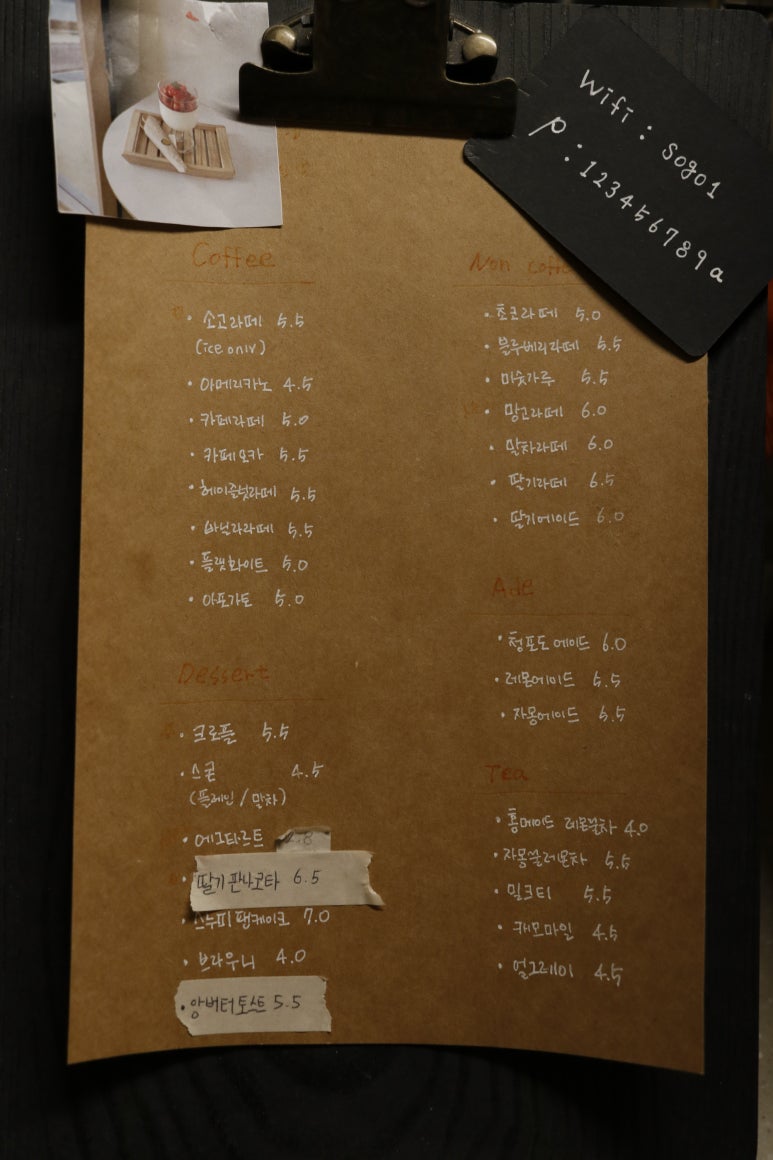 Wifi : sogo1
p : 123456789a
Coffee
• 소고라떼 5.5
(ice only)
• 아메리카노 4.5
• 카페라떼 5.0
• 카페모카 5.5
• 헤이즐넛라떼 5.5
• 바닐라라떼 5.5
• 플랫화이트 5.0
• 아포가토 5.0
Dessert
• 크로플 5.5
• 스콘 4.5
(플레인 / 말차)
• 에그타르트
딸기판나코타 6.5
• 스누피팬케이크 7.0
• 브라우니 4.0
• 앙버터토스트 5.5
Non coffee
• 초코라떼 5.0
• 블루베리라떼 5.5
• 미숫가루 5.5
• 망고라떼 6.0
• 말차라떼 6.0
• 딸기라떼 6.5
• 딸기에이드 6.0
Ade
• 청포도에이드 6.0
• 레몬에이드 5.5
• 자몽에이드 5.5
Tea
• 홈메이드 레몬꿀차 4.0
• 자몽꿀레몬차 5.5
• 밀크티 5.5
• 캐모마일 4.5
• 얼그레이 4.5